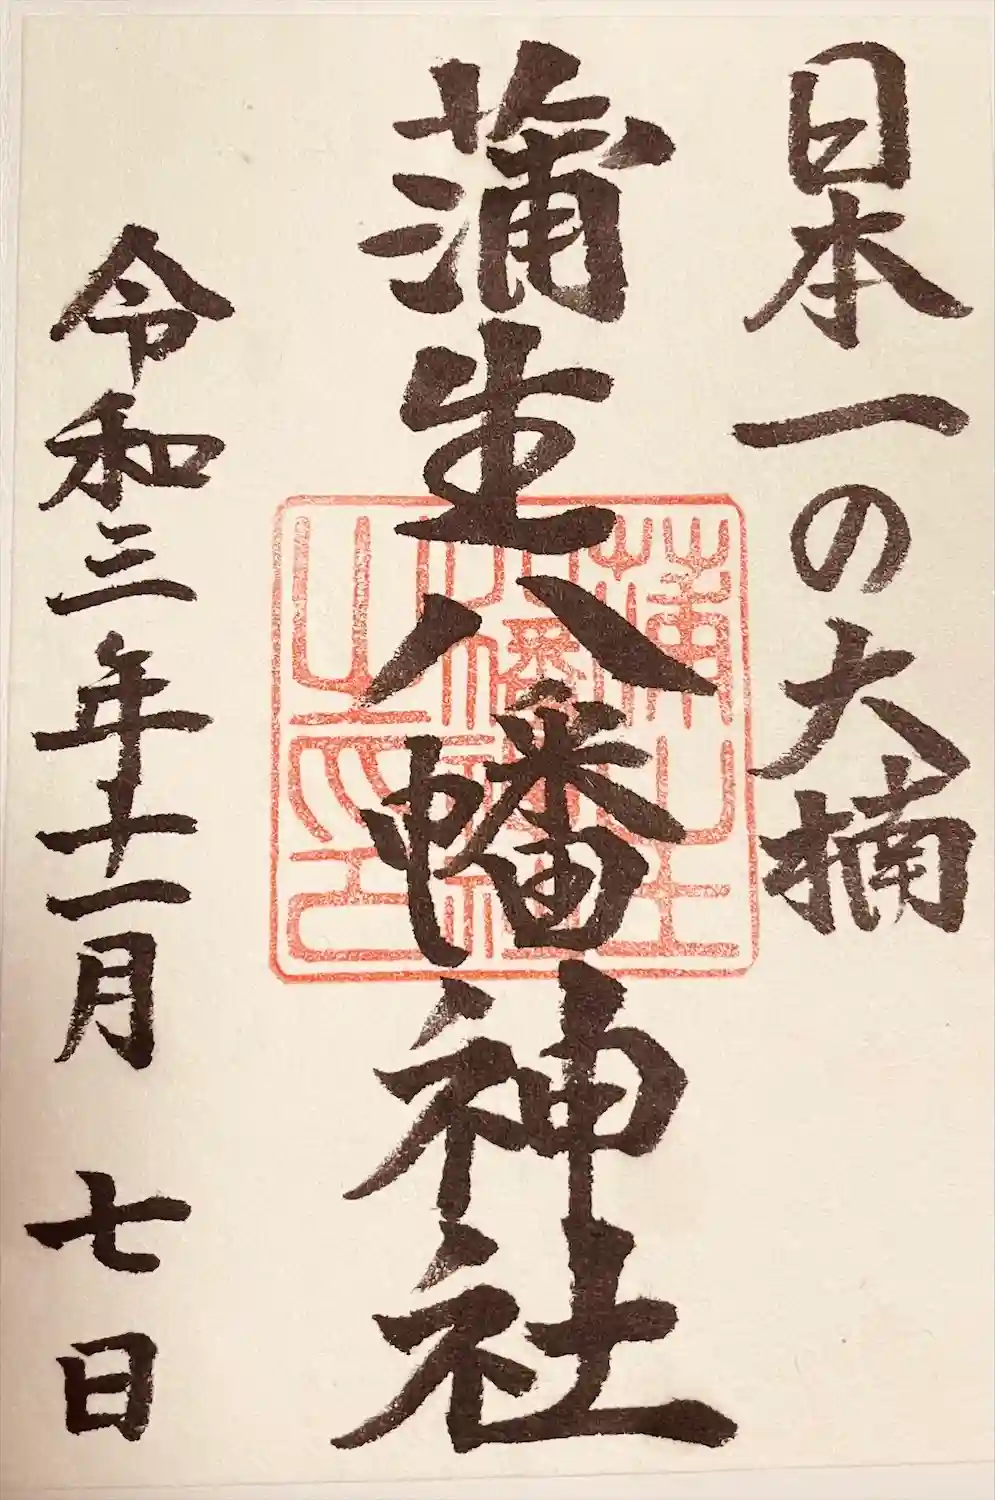 日本一の大楠
蒲生八幡神社
蒲生
八幡神社
之印
令和三年十一月七日